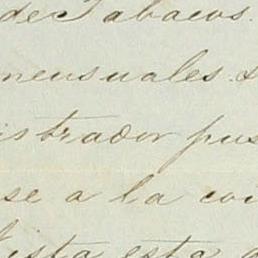 de Tabacos.
mensuales.
istrador pus
se a la con
Vista esta